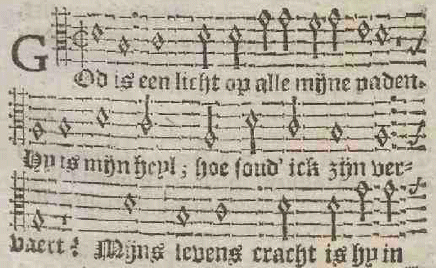 GOd is een licht op alle mijne paden.
Hy is mijn heyl; hoe soud' ick zijn ver-
vaert? Mijns levens cracht is hy in